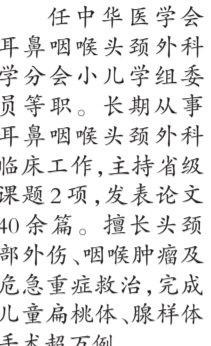 任中华医学会
耳鼻咽喉头颈外科
学分会小儿学组委
员等职。长期从事
耳鼻咽喉头颈外科
临床工作,主持省级
课题2项,发表论文
40余篇。擅长头颈
部外伤、咽喉肿瘤及
危急重症救治,完成
儿童扁桃体、腺样体
手术超万例